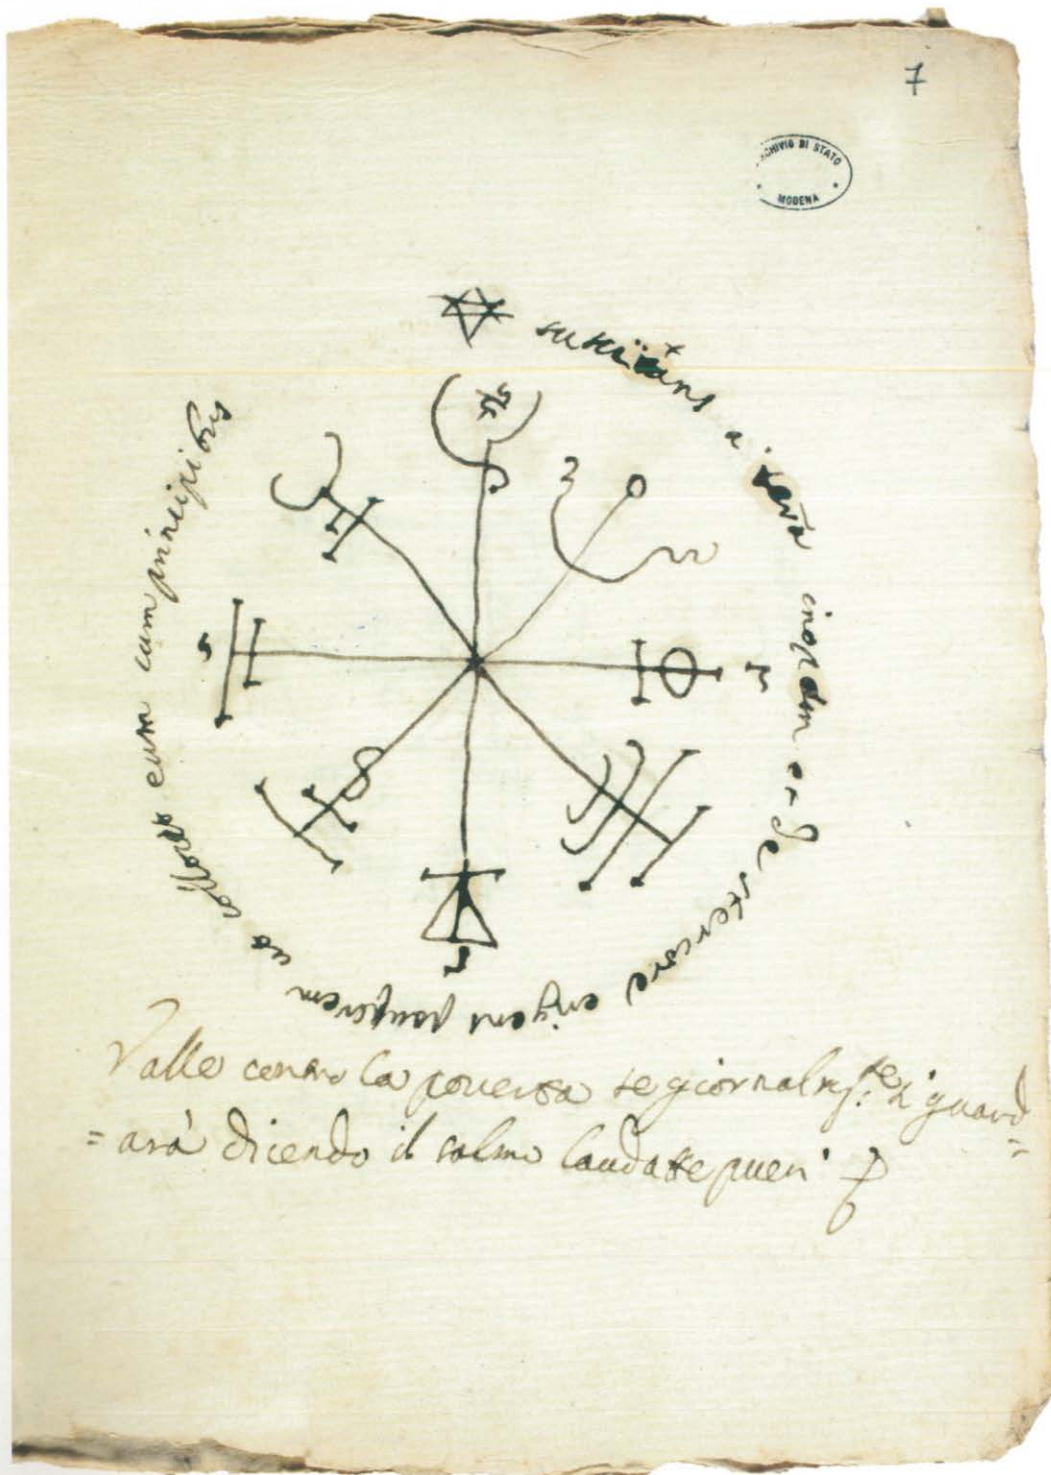 7
ARCHIVIO DI STATO
MODENA
suscitans a terra inopem et de stercore erigens pauperem ut collocet eum cum principibus
Valle contro la povertà se giornalm:te si guard
=arà dicendo il salmo laudate pueri